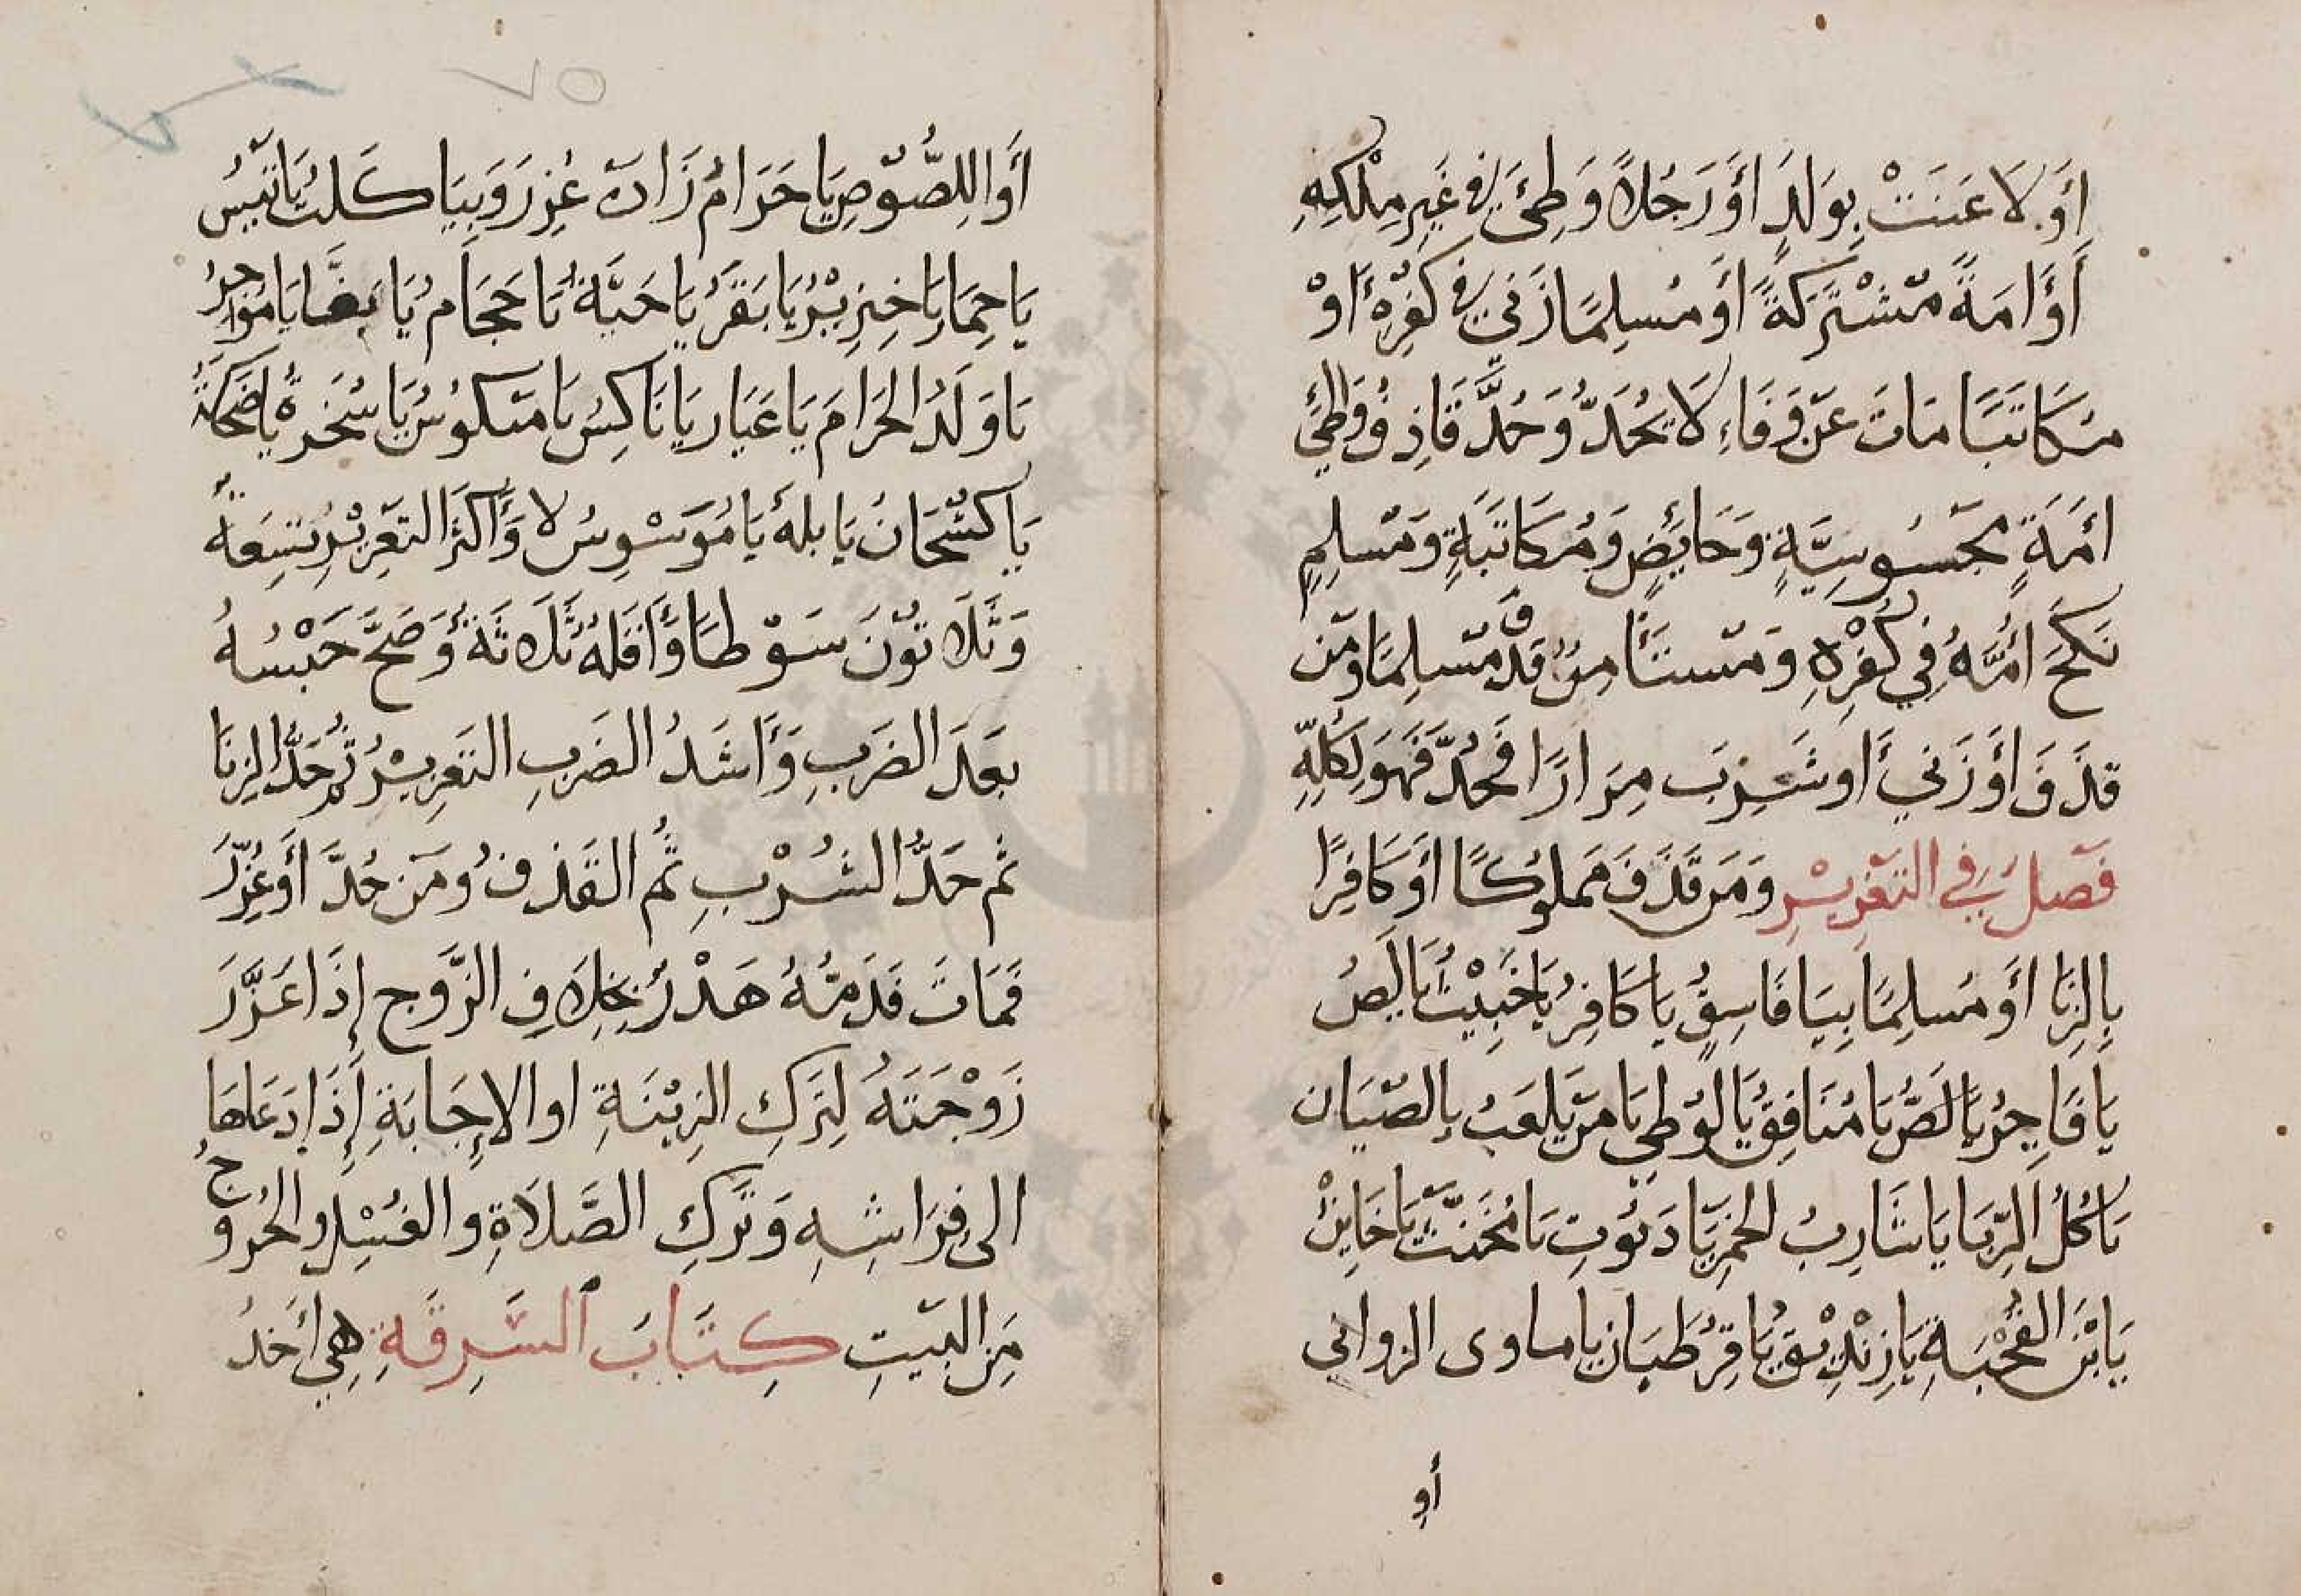 أَوْ لَاعَنَتْ بِوَلَدٍ أَوْ رَجُلاً وَطِئَ فِي غَيْرِ مِلْكِهِ
أَوْ أَمَةً مُشْتَرَكَةً أَوْ مُسْلِمًا زَنَى فِي كُفْرِهِ أَوْ
مُكَاتَبًا مَاتَ عَنْ وَفَاءٍ لَا يُحَدُّ وَحُدَّ قَاذِفُ وَاطِئِ
أَمَةٍ مَجُسُوسِيَّةٍ وَحَائِضٍ وَمُكَاتَبَةٍ وَمُسْلِمٍ
نَكَحَ أُمَّهُ فِي كُفْرِهِ وَمُسْتَأْمِنٍ قَذَفَ مُسْلِمًا وَمَنْ
قَذَفَ أَوْ زَنَى أَوْ شَرِبَ مِرَارًا فَحُدَّ فَهُوَ لِكُلِّهِ
فَصْلٌ فِي التَّعْزِيْرِ وَمَنْ قَذَفَ مَمْلُوكًا أَوْ كَافِرًا
بِالزِّنَا أَوْ مُسْلِمًا بِيَا فَاسِقُ يَا كَافِرُ يَا خَبِيْثُ يَا لِصُّ
يَا فَاجِرُ يَا لِصُّ يَا مُنَافِقُ يَا لُوْطِي يَا مَنْ يَلْعَبُ بِالصِّبْيَان
يَا آكُلَ الرِّبَا يَا شَارِبُ الْخَمْرِ يَا دَيُّوْثُ يَا مُخَنَّثُ يَا خَايِنُ
يَا بْنَ الْقُحْبَةِ يَا زِنْدِيْقُ يَا قِرْطَبَانُ يَا ماوى الزوانى
أو
أَوِ اللِّصُّوْصِ يَا حَرَامُ زَادَه عُزِرَ وَبِيَا كَلْبُ يَا تَيْسُ
يَا حِمَارُ يَا خِنْزِيْرُ يَا بَقَرُ يَا حَيَّةُ يَا حَجَّامُ يَا بَغَّا يَا مُوَاجِرُ
يَا وَلَدُ الْحَرَامِ يَا عَيَّار يَا نَاكِسُ يَا مَنْكُوْسُ يَا سُخْرَةُ يَا ضُحَكَةُ
يَا كَشْحَانُ يَا بلهُ يَا مُوَسْوِسُ لا وَأَكْثَرُ التَّعْزِيْرِ تِسْعَةٌ
وَثَلَاثُوْنَ سَوْطًا وَأَقَلُّهُ ثَلَاثَةٌ وَصَحَّ حَبْسُهُ
بَعْدَ الضَّرْبِ وَأَشَدُّ الضَّرْبِ التَّعْزِيْرُ ثُمَّ حَدُّ الزِّنَا
ثُمَّ حَدُّ الشُّرْبِ ثُمَّ الْقَذْفُ وَمَنْ حُدَّ أَوْ عُزِّرَ
فَمَاتَ فَدَمُهُ هَدْرٌ بِخِلَافِ الزَّوْجِ إِذَا عَزَّرَ
زَوْجَتَهُ لِتَرْكِ الزِّيْنَةِ او الإِجَابَةِ إِذَا دَعَاهَا
الى فِرَاشِهِ وَتَرْكِ الصَّلَاةِ وَالْغُسْلِ وَالْخُرُوجُ
مِنَ الْبَيْتِ كِتَابُ السَّرِقَةِ هِيَ أَخْذُ